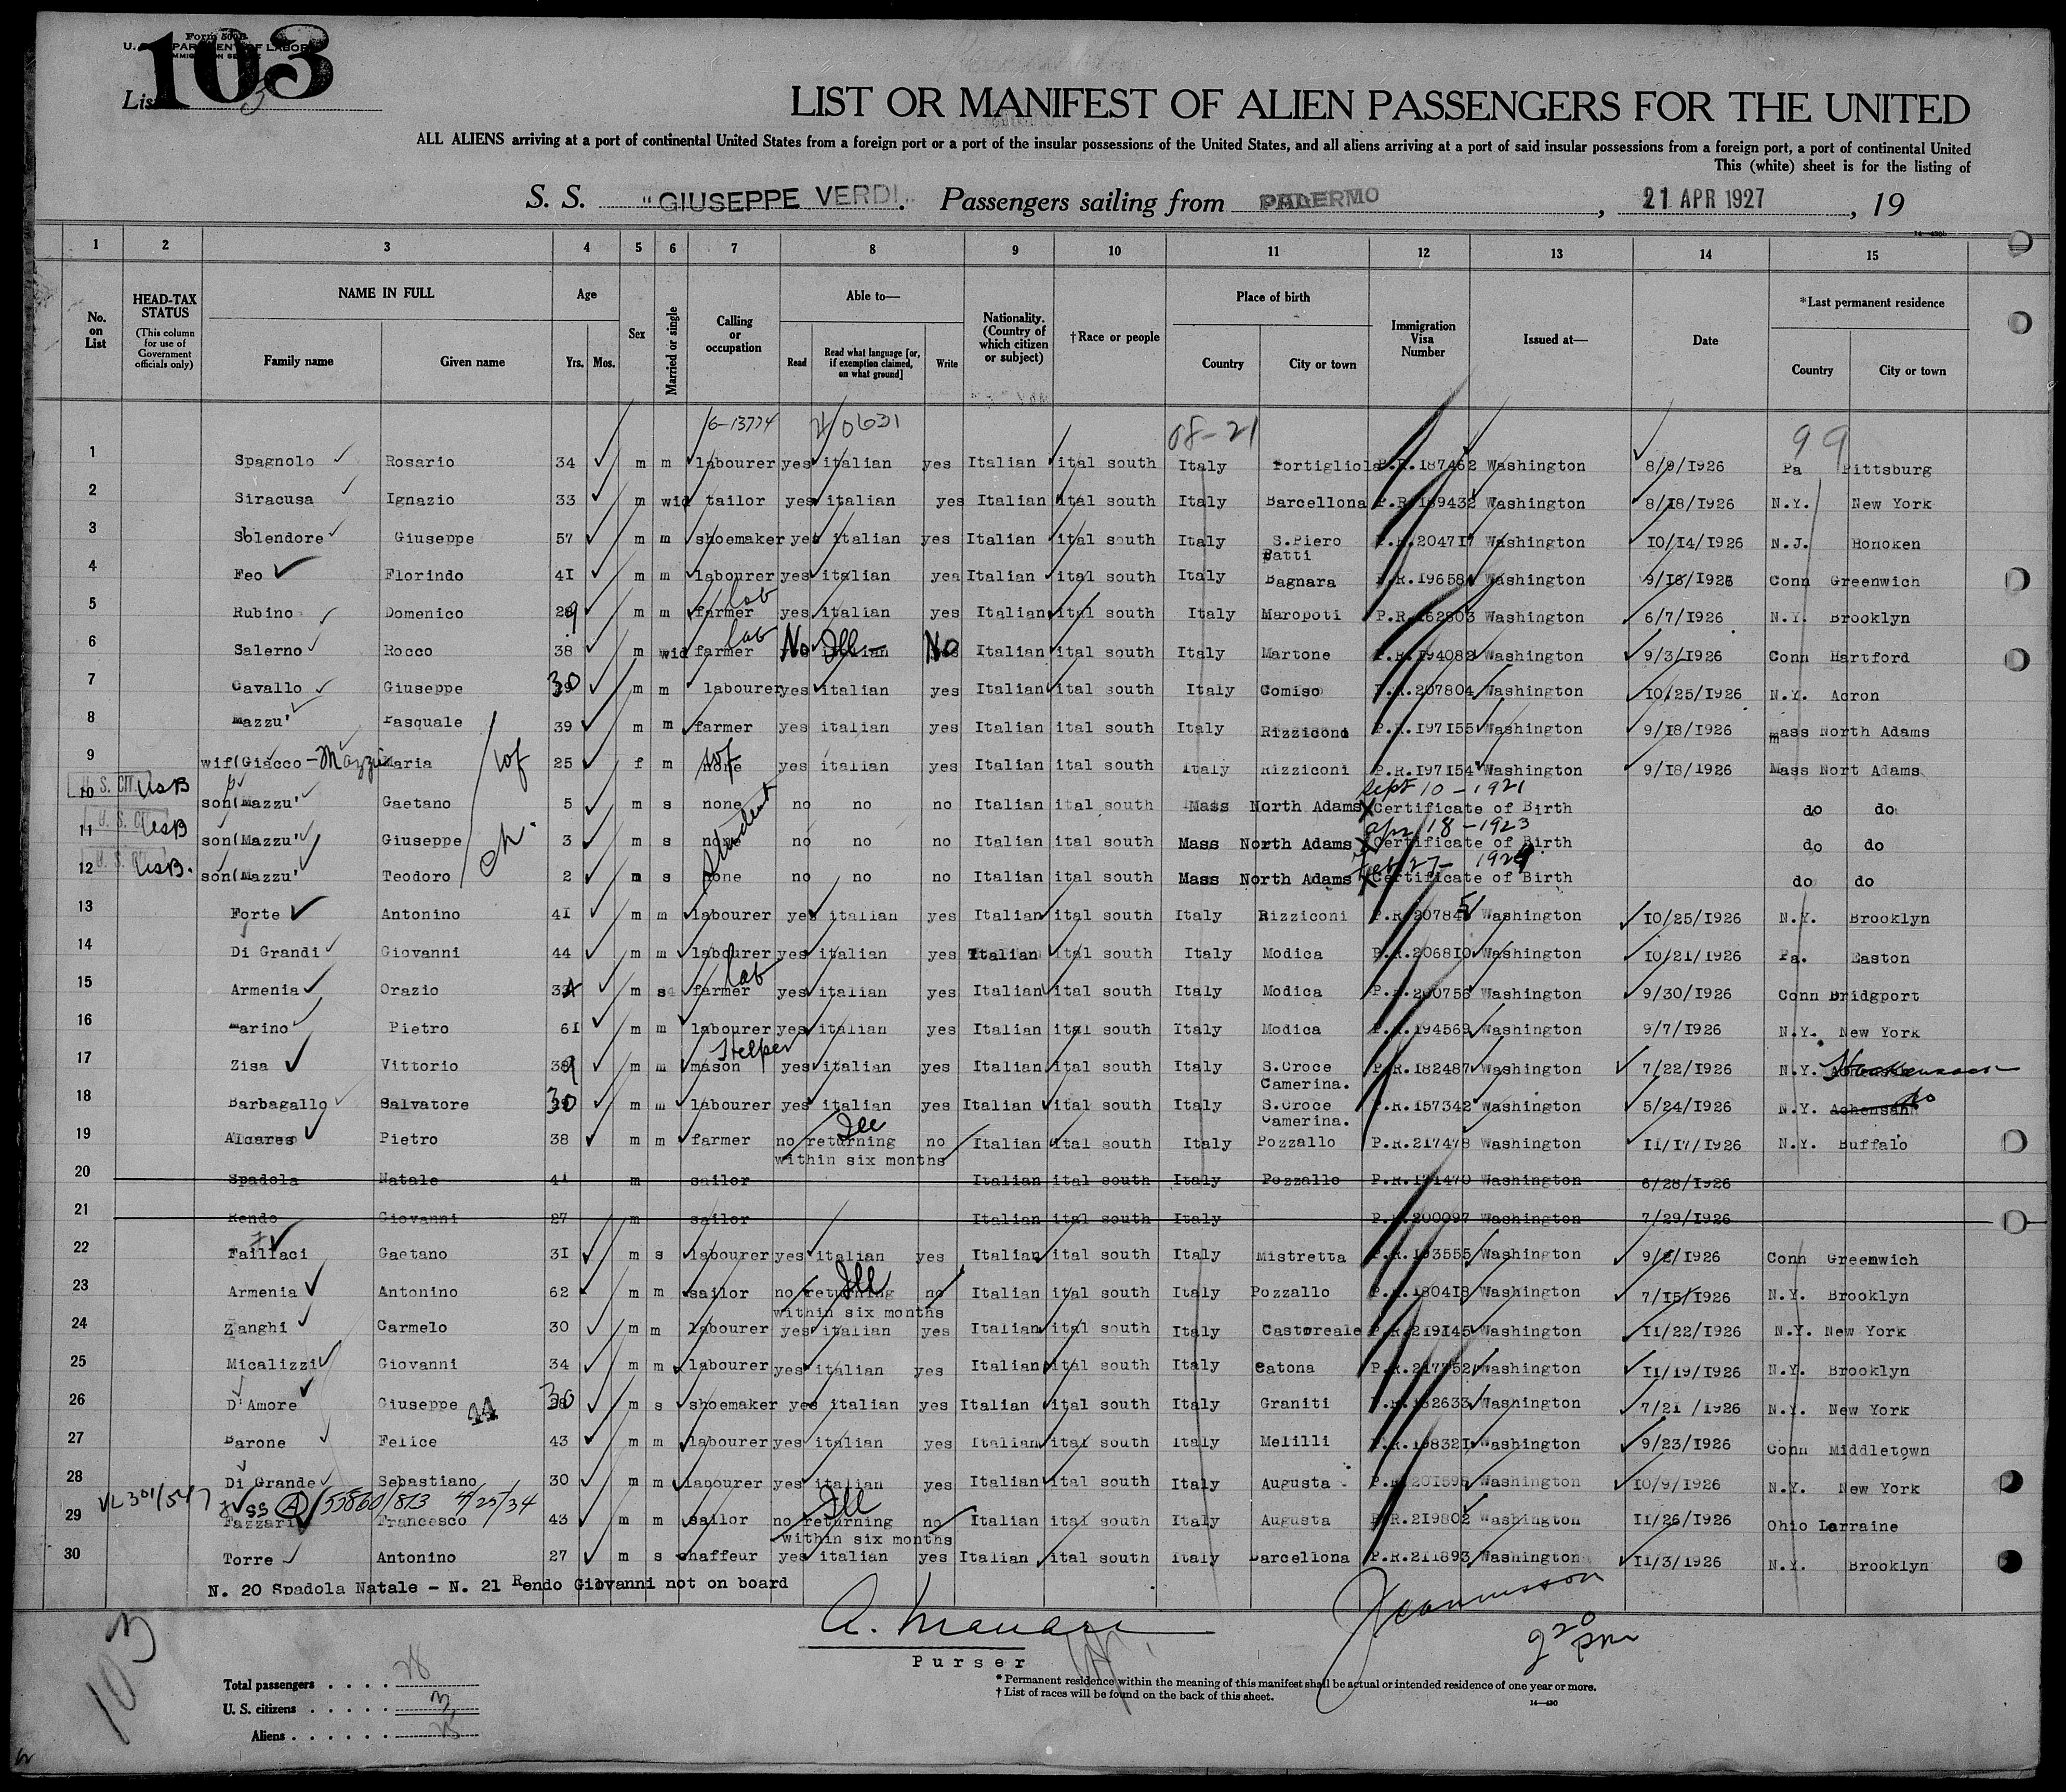 Form 500B
U. S. DEPARTMENT OF LABOR
IMMIGRATION SERVICE
103
List 5
LIST OR MANIFEST OF ALIEN PASSENGERS FOR THE UNITED
ALL ALIENS arriving at a port of continental United States from a foreign port or a port of the insular possessions of the United States, and all aliens arriving at a port of said insular possessions from a foreign port, a port of continental United
This (white) sheet is for the listing of
S. S. "GIUSEPPE VERDI". Passengers sailing from PALERMO, 21 APR 1927, 19
1 2 3 4 5 6 7 8 9 10 11 12 13 14 15
No. on List
HEAD-TAX STATUS (This column for use of Government officials only)
NAME IN FULL Family name Given name
Age Yrs. Mos.
Sex
Married or single
Calling or occupation
Able to— Read Read what language [or, if exemption claimed, on what ground] Write
Nationality. (Country of which citizen or subject)
†Race or people
Place of birth Country City or town
Immigration Visa Number
Issued at—
Date
*Last permanent residence Country City or town
6-13774 08-21 99
1 Spagnolo Rosario 34 m m labourer yes italian yes Italian ital south Italy Portigliola P.R.187462 Washington 8/9/1926 Pa Pittsburg
2 Siracusa Ignazio 33 m wid tailor yes italian yes Italian ital south Italy Barcellona P.R.189432 Washington 8/18/1926 N.Y. New York
3 Solendore Giuseppe 57 m m shoemaker yes italian yes Italian ital south Italy S.Piero Patti P.R.204717 Washington 10/14/1926 N.J. Honoken
4 Feo Florindo 41 m m labourer yes italian yes Italian ital south Italy Bagnara P.R.196584 Washington 9/18/1926 Conn Greenwich
5 Rubino Domenico 29 m m farmer lab yes italian yes Italian ital south Italy Maropoti P.R.162803 Washington 6/7/1926 N.Y. Brooklyn
6 Salerno Rocco 38 m wid farmer lab No Ill- No Italian ital south Italy Martone P.R.194082 Washington 9/3/1926 Conn Hartford
7 Cavallo Giuseppe 30 m m labourer yes italian yes Italian ital south Italy Comiso P.R.207804 Washington 10/25/1926 N.Y. Acron
8 Mazzu' Pasquale 39 m m farmer yes italian yes Italian ital south Italy Rizziconi P.R.197155 Washington 9/18/1926 Mass North Adams
9 wif(Giacco - Mazzu Maria wf 25 f m none wf yes italian yes Italian ital south Italy Rizziconi P.R.197154 Washington 9/18/1926 Mass Nort Adams
Sept 10-1921
10 U. S. CIT. USB son(Mazzu' Gaetano 5 m s none no no no Italian ital south Mass North Adams Certificate of Birth do do
Apr 18-1923
11 U. S. CIT. USB son(Mazzu' Giuseppe ch. 3 m s none student no no no Italian ital south Mass North Adams Certificate of Birth do do
Feb 27- 1924
12 U. S. CIT. USB. son(Mazzu' Teodoro 2 m s none no no no Italian ital south Mass North Adams Certificate of Birth do do
13 Forte Antonino 41 m m labourer yes italian yes Italian ital south Italy Rizziconi P.R.207845 Washington 10/25/1926 N.Y. Brooklyn
14 Di Grandi Giovanni 44 m m labourer yes italian yes Italian ital south Italy Modica P.R.206810 Washington 10/21/1926 Pa. Easton
15 Armenia Orazio m s farmer lab yes italian yes Italian ital south Italy Modica P.R.200756 Washington 9/30/1926 Conn Bridgport
16 Marino Pietro 61 m m labourer yes italian yes Italian ital south Italy Modica P.R.194569 Washington 9/7/1926 N.Y. New York
17 Zisa Vittorio 39 m m mason Helper yes italian yes Italian ital south Italy S.Croce Camerina. P.R.182487 Washington 7/22/1926 N.Y. Hackensack
18 Barbagallo Salvatore 30 m m labourer yes italian yes Italian ital south Italy S.Croce Camerina. P.R.157342 Washington 5/24/1926 N.Y. Achensan do
19 Alcares Pietro 38 m m farmer no returning within six months Ill no Italian ital south Italy Pozzallo P.R.217478 Washington 11/17/1926 N.Y. Buffalo
20 Spadola Natale 41 m sailor Italian ital south Italy Pozzallo P.R.171470 Washington 6/28/1926
21 Rendo Giovanni 27 m sailor Italian ital south Italy P.R.200097 Washington 7/29/1926
22 Faillaci Gaetano 31 m s labourer yes italian yes Italian ital south Italy Mistretta P.R.193555 Washington 9/2/1926 Conn Greenwich
23 Armenia Antonino 62 m m sailor no returning within six months Ill no Italian ital south Italy Pozzallo P.R.180418 Washington 7/15/1926 N.Y. Brooklyn
24 Zanghi Carmelo 30 m m labourer yes italian yes Italian ital south Italy Castoreale P.R.219145 Washington 11/22/1926 N.Y. New York
25 Micalizzi Giovanni 34 m m labourer yes italian yes Italian ital south Italy Catona P.R.217252 Washington 11/19/1926 N.Y. Brooklyn
26 D'Amore Giuseppe 44 30 m s shoemaker yes italian yes Italian ital south Italy Graniti P.R.182633 Washington 7/21 /1926 N.Y. New York
27 Barone Felice 43 m m labourer yes italian yes Italian ital south Italy Melilli P.R.198321 Washington 9/23/1926 Conn Middletown
28 Di Grande Sebastiano 30 m m labourer yes italian yes Italian ital south Italy Augusta P.R.201595 Washington 10/9/1926 N.Y. New York
VL 301/547 SS (A) 55860/873 4/25/34
29 Fazzari Francesco 43 m m sailor no returning within six months Ill no Italian ital south Italy Augusta P.R.219802 Washington 11/26/1926 Ohio Lorraine
30 Torre Antonino 27 m s chaffeur yes italian yes Italian ital south Italy Barcellona P.R.211893 Washington 11/3/1926 N.Y. Brooklyn
N. 20 Spadola Natale - N. 21 Rendo Giovanni not on board
Purser
920 pm
103
Total passengers . . . . 28
U. S. citizens . . . . . 3
Aliens . . . . . . 25
* Permanent residence within the meaning of this manifest shall be actual or intended residence of one year or more.
† List of races will be found on the back of this sheet.
14—430